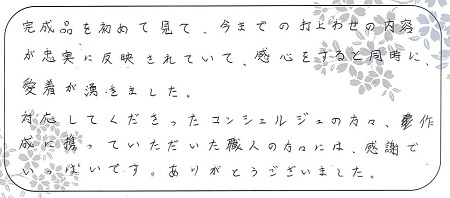 完成品を初めて見て、今までの打ち合わせの内容
が忠実に反映されていて、感心をすると同時に、
愛着が湧きました。
対応してくださったコンシェルジュの方々、作
成に携っていただいた職人の方々には、感謝で
いっぱいです。ありがとうございました。